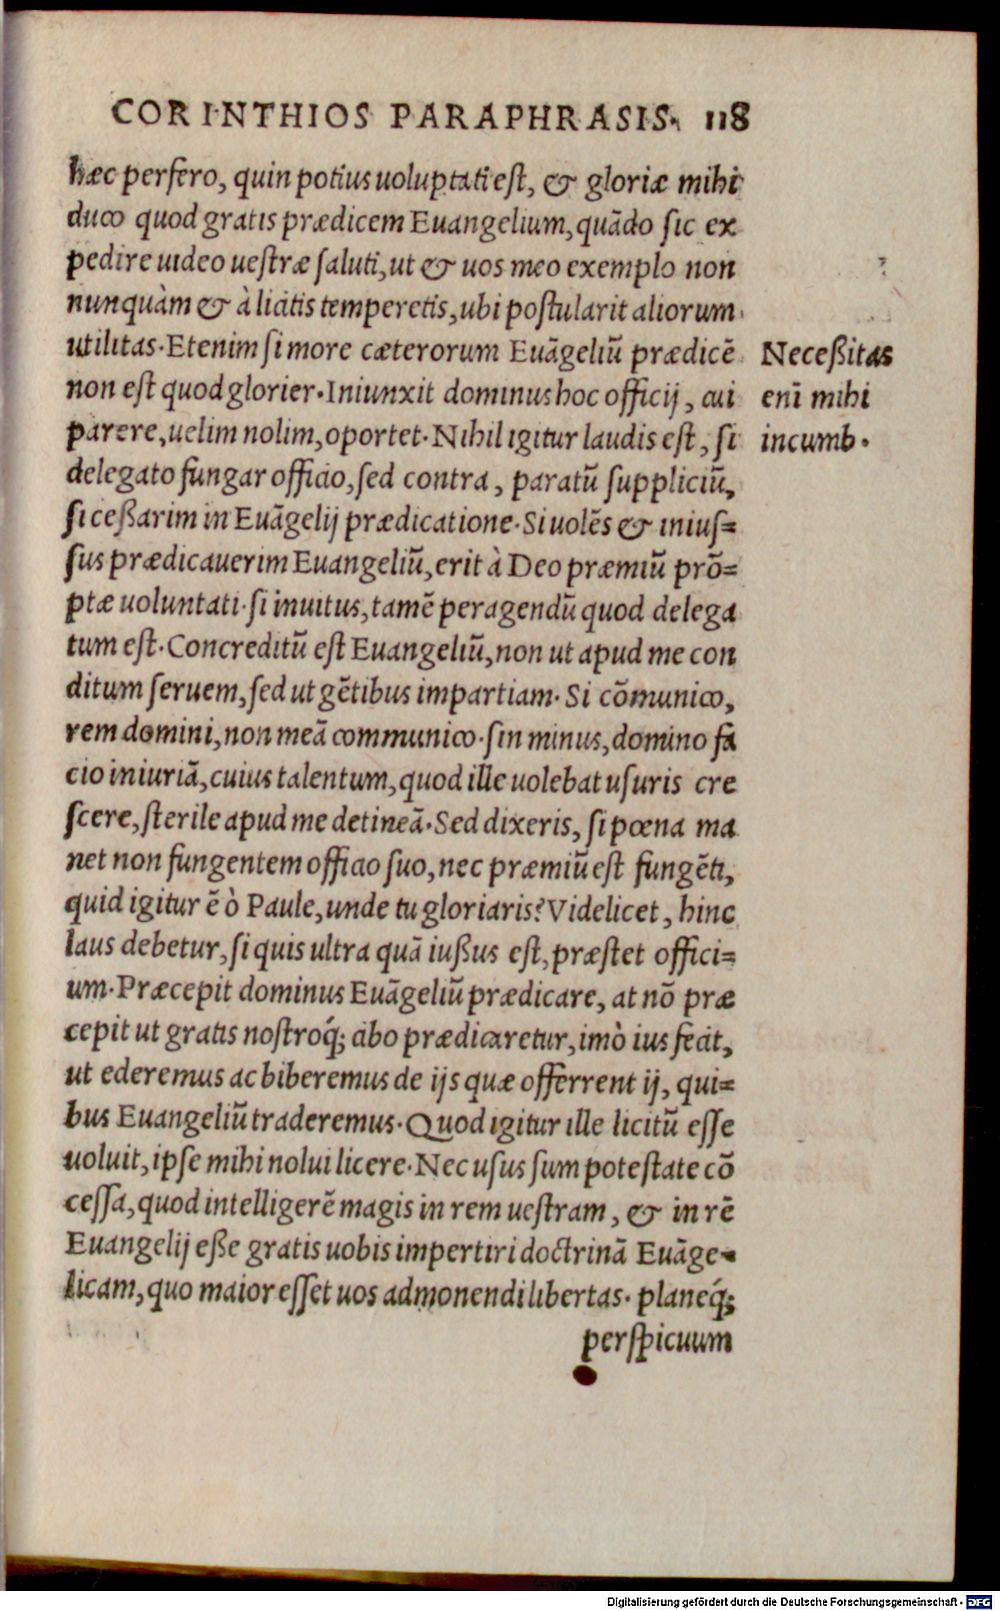 CORINTHIOS PARAPHRASIS. 118
hæc perfero, quin potius uoluptati est, & gloriæ mihi
duco quod gratis prædicem Euangelium, quãdo sic ex
pedire uideo uestræ saluti, ut & uos meo exemplo non
nunquàm & à licitis temperetis, ubi postularit aliorum
utilitas. Etenim si more cæterorum Euãgeliũ prædicẽ
non est quod glorier. Iniunxit dominus hoc officij, cui
parere, uelim nolim, oportet. Nihil igitur laudis est, si
delegato fungar officio, sed contra, paratũ suppliciũ,
si ceßarim in Euãgelij prædicatione. Si uolẽs & inius=
sus prædicauerim Euangeliũ, erit à Deo præmiũ prõ=
ptæ uoluntati. si inuitus, tamẽ peragendũ quod delega
tum est. Concreditũ est Euangeliũ, non ut apud me con
ditum seruem, sed ut gẽtibus impartiam. Si cõmunico,
rem domini, non meã communico. sin minus, domino fa
cio iniuriã, cuius talentum, quod ille uolebat usuris cre
scere, sterile apud me detineã. Sed dixeris, si pœna ma
net non fungentem officio suo, nec præmiũ est fungẽti,
quid igitur ẽ ò Paule, unde tu gloriaris? Videlicet, hinc
laus debetur, si quis ultra quã iußus est, præstet offici=
um. Præcepit dominus Euãgeliũ prædicare, at nõ præ
cepit ut gratis nostroq́; cibo prædicaretur, imò ius fecit,
ut ederemus ac biberemus de ijs quæ offerrent ij, qui=
bus Euangeliũ traderemus. Quod igitur ille licitũ esse
uoluit, ipse mihi nolui licere. Nec usus sum potestate cõ
cessa, quod intelligerẽ magis in rem uestram, & in rẽ
Euangelij eße gratis uobis impertiri doctrinã Euãge=
licam, quo maior esset uos admonendi libertas. planeq́;
perspicuum
Neceßitas
enĩ mihi
incumb.
Digitalisierung gefördert durch die Deutsche Forschungsgemeinschaft - DFG